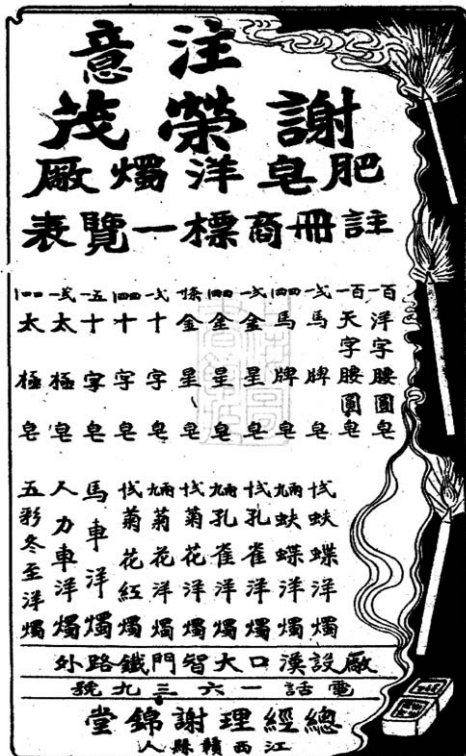 注意
謝榮茂
肥皂洋燭廠
註冊商標一覽表
一百洋字腰圓皂
一百天字腰圓皂
一弍馬牌皂
一四四馬牌皂
一弍金星皂
一四四金星皂
條金星皂
一弍十字皂
一四四十字皂
一五十字皂
一弍太極皂
一四四太極皂
十弍蚨蝶洋燭
九兩蚨蝶洋燭
十弍孔雀洋燭
九兩孔雀洋燭
十弍菊花洋燭
九兩菊花洋燭
十弍菊花紅燭
馬車洋燭
人力車洋燭
五彩冬至洋燭
廠設漢口大智門鐵路外
電話一六三九號
總經理謝錦堂
江西贛縣人